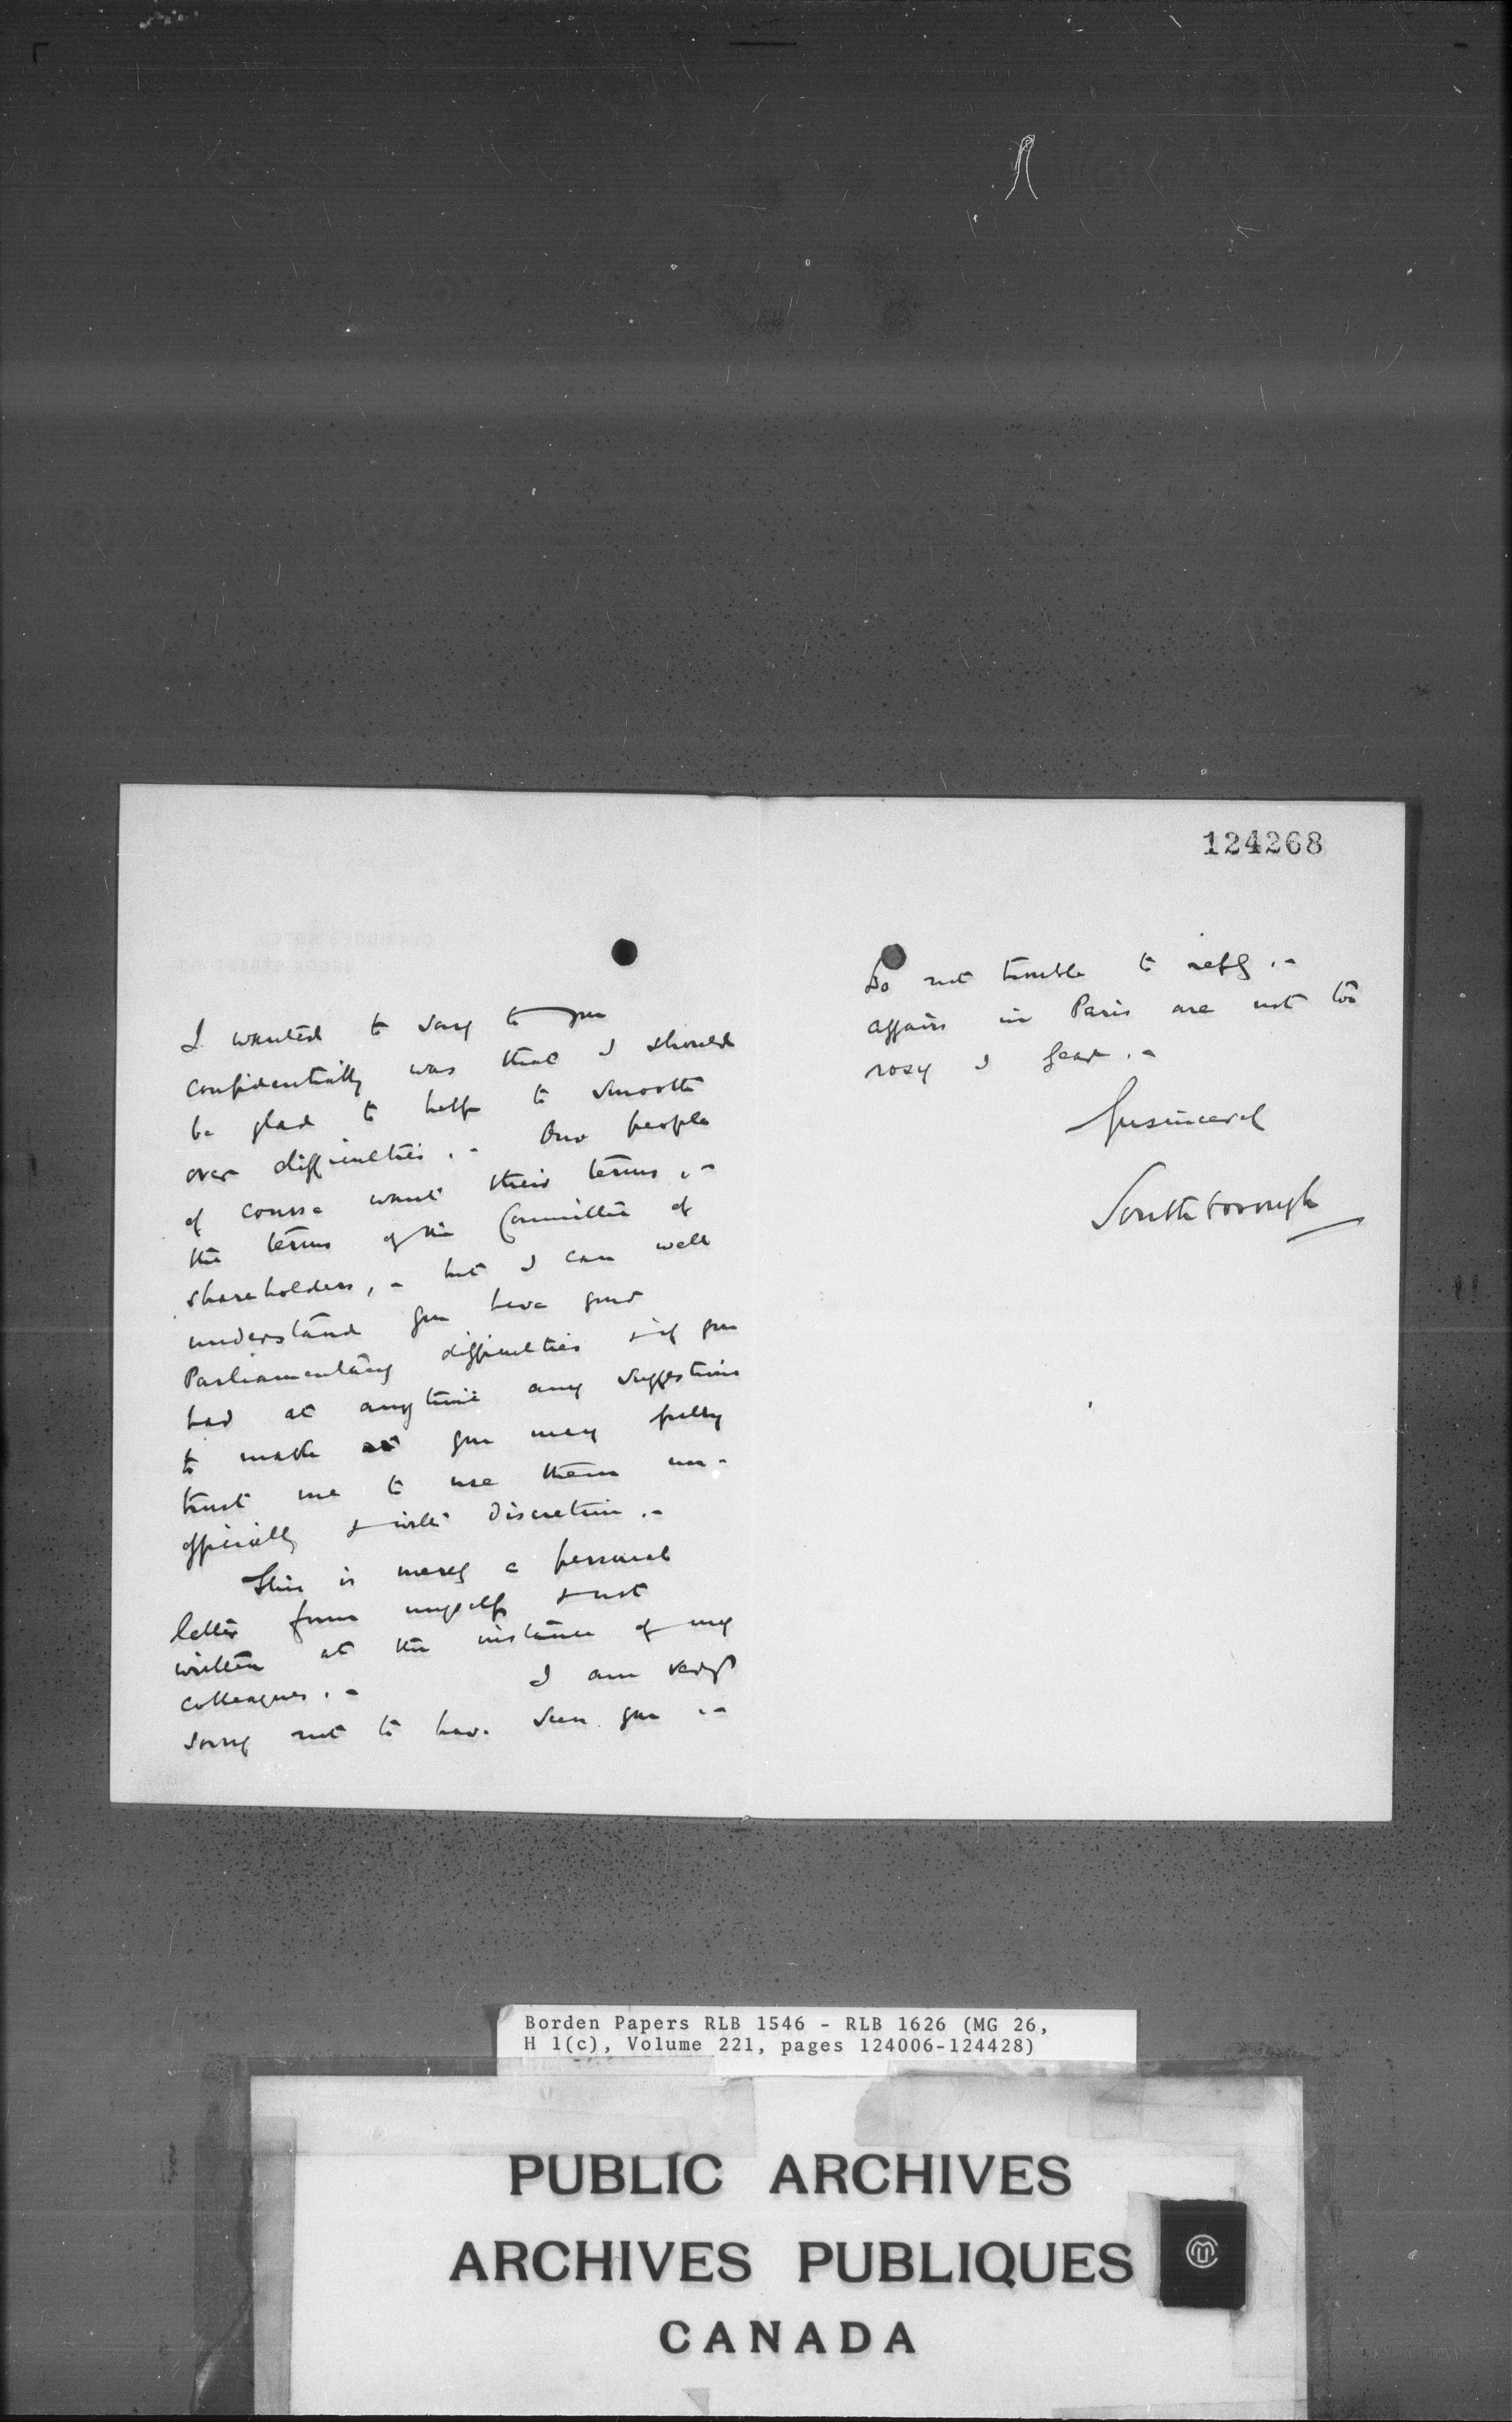 124268
I wanted to say to you
confidentially was that I should
be glad to help to smooth
over difficulties. - Our people
of course want their terms, -
the terms of the Committee of
shareholders, - but I can well
understand you have your
Parliamentary difficulties & if you
had at any time any suggestions
to make you may fully
trust me to use them un-
officially & with discretion. -
This is merely a personal
letter from myself & not
written at the instance of my
colleagues. - I am very
sorry not to have seen you. -
Do not trouble to reply. -
affairs in Paris are not too
rosy I fear. -
Yrs sincerely
Southborough
Borden Papers RLB 1546 - RLB 1626 (MG 26,
H 1(c), Volume 221, pages 124006-124428)
PUBLIC ARCHIVES
ARCHIVES PUBLIQUES
CANADA